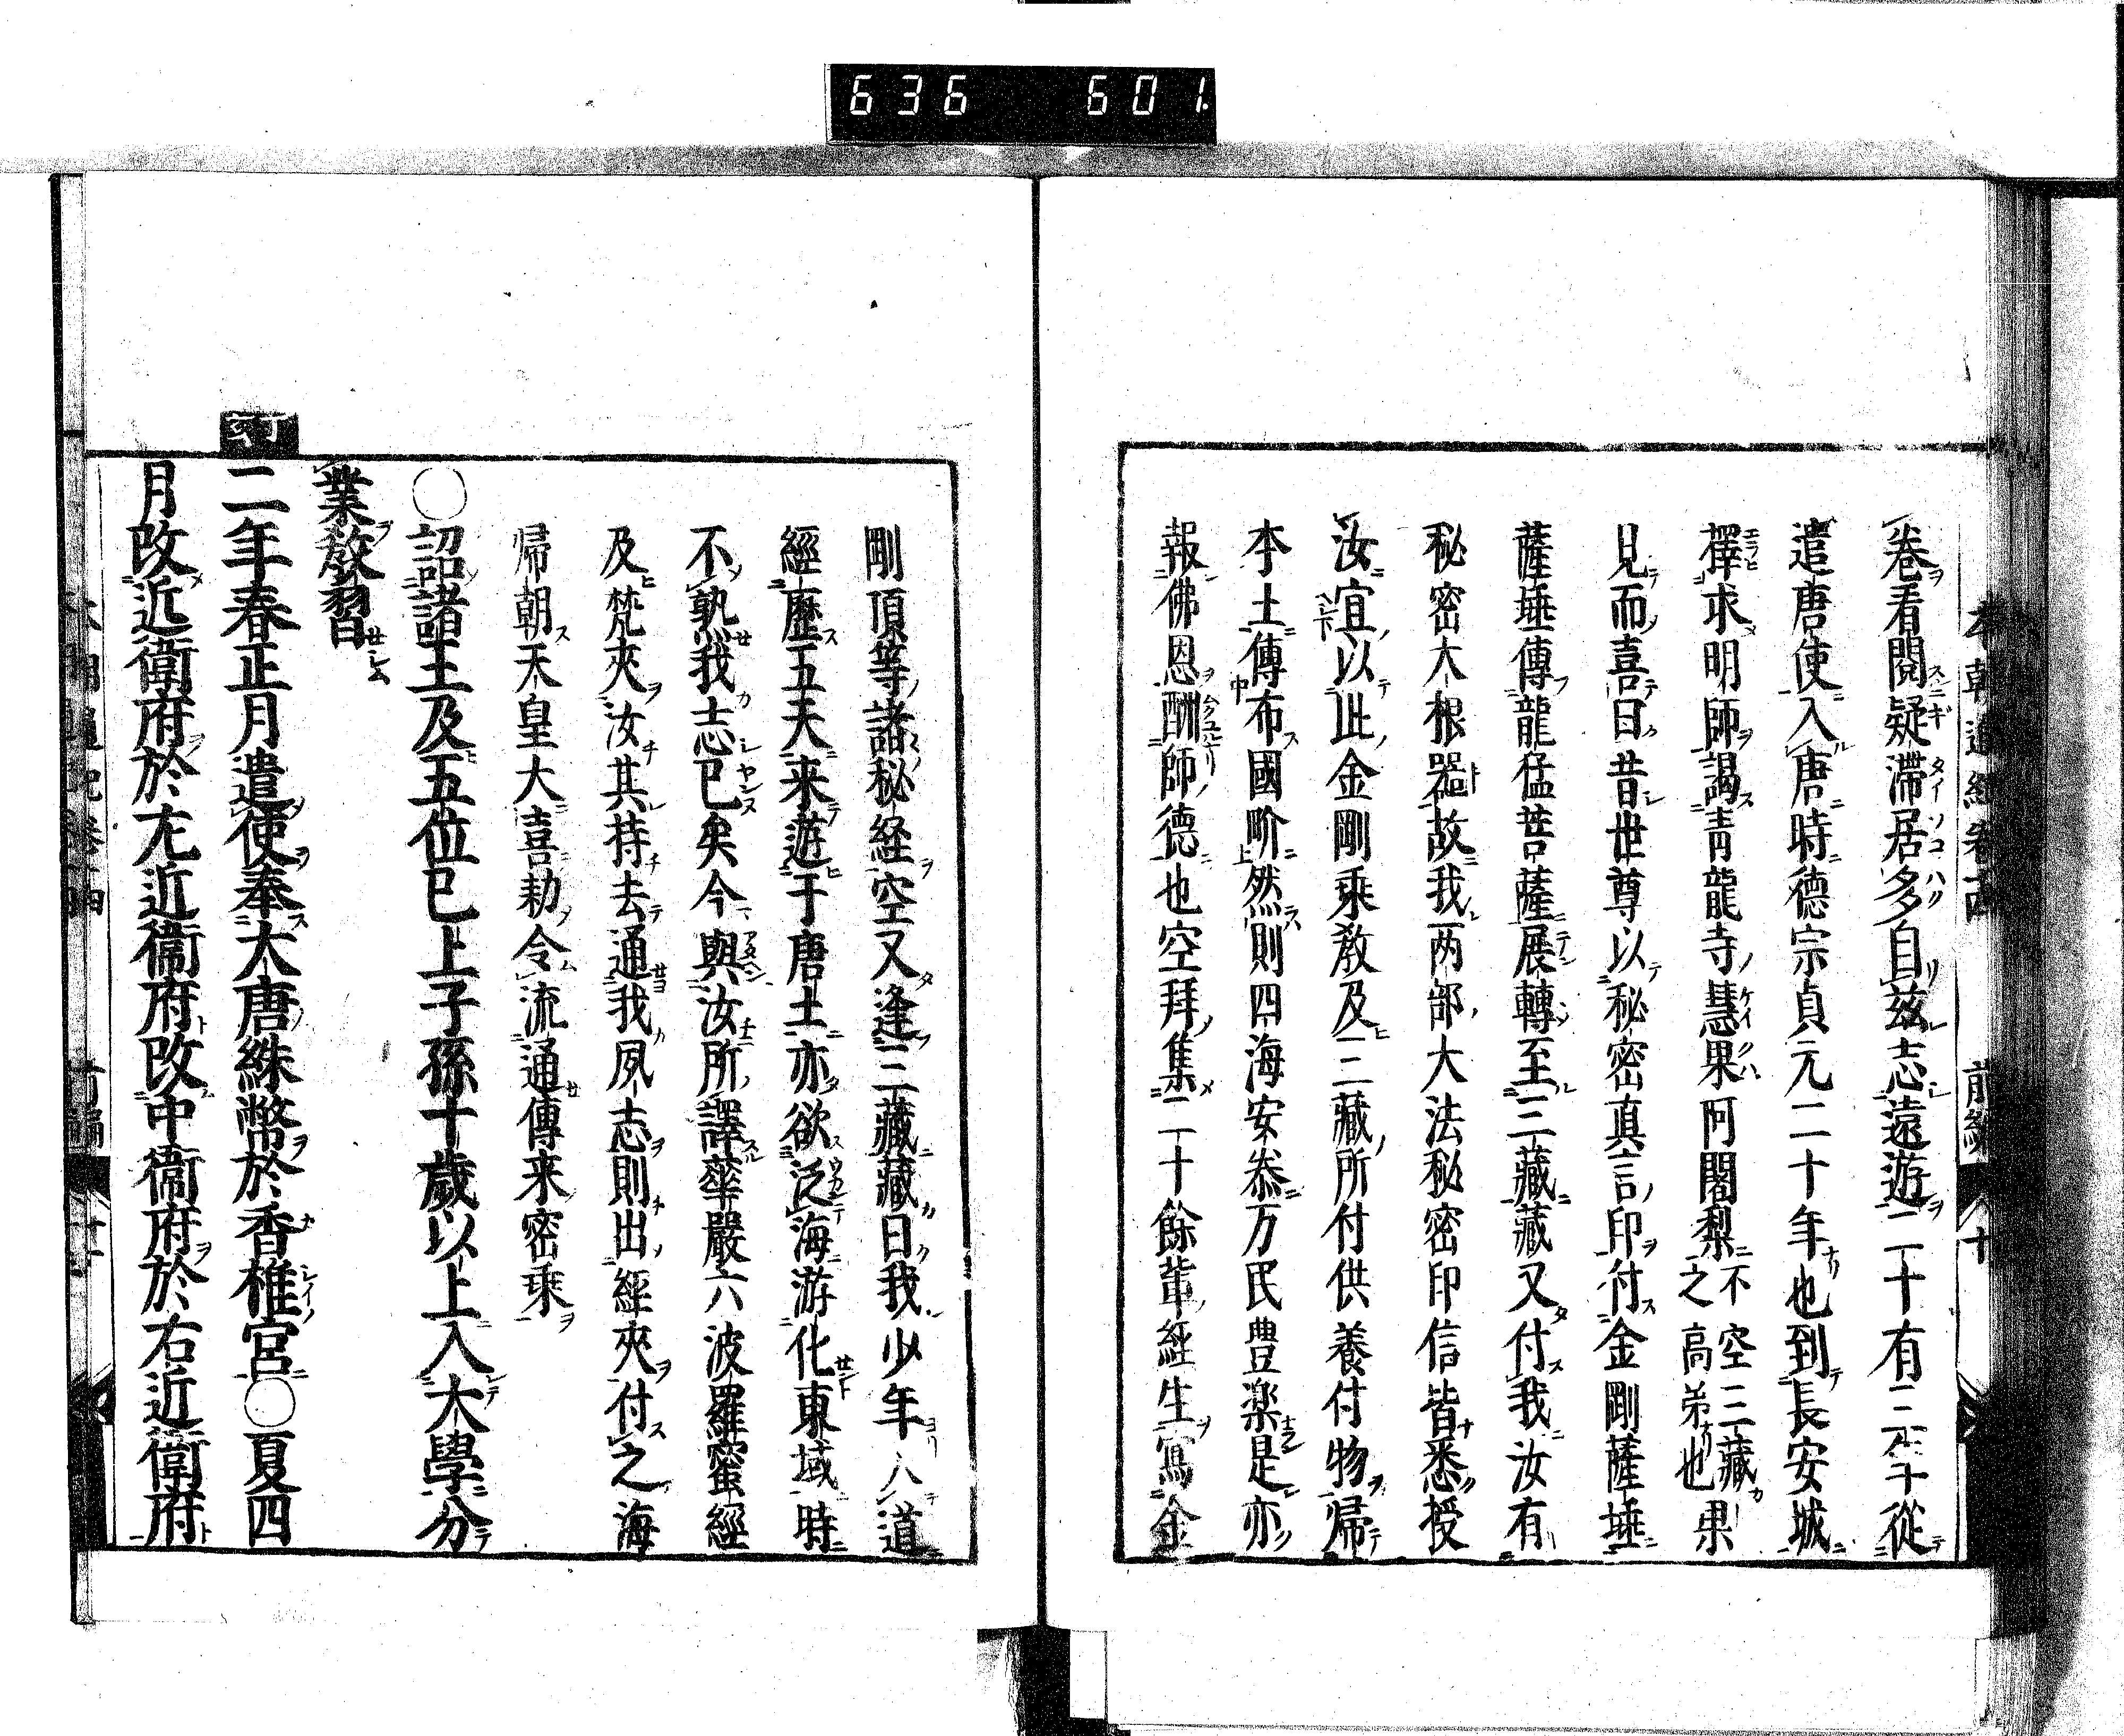 636 601.
本朝通紀卷四 前編 十
卷看閱疑滯居多自茲志遠遊二十有三年從
遣唐使入唐時德宗貞元二十年也到長安城
擇求明師謁青龍寺慧果阿闍梨不空三藏果之高弟也
見而喜曰昔世尊以秘密真言印付金剛薩埵
薩埵傳龍猛菩薩展轉至三藏藏又付我汝有
秘密大根器故我两部大法秘密印信皆悉授
汝宜以此金剛乘教及三藏所付供養付物歸
本土傳布國界然則四海安泰万民豊楽是亦
報佛恩酬師德也空拜集二十餘輩經生寫金
剛頂等諸秘経空又逢三藏藏曰我少年入道
經歷五天来遊于唐土亦欲泛海游化東域時
不熟我志已矣今與汝所譯華嚴六波羅蜜經
及梵夾汝其持去通我夙志則出經夾付之海
帰朝天皇大喜勅令流通傳来密乗
〇詔諸王及五位已上子孫十歲以上入大學分
業教習
二年春正月遣使奉大唐綵幣於香椎宮〇夏四
月改近衛府於左近衛府改中衛府於右近衛府